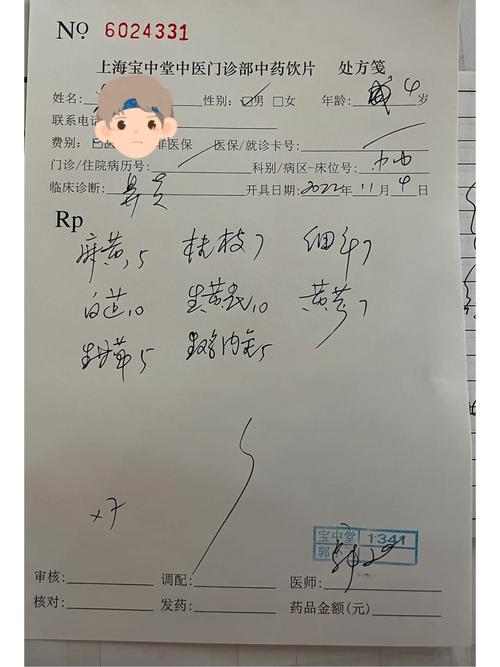 № 6024331
上海宝中堂中医门诊部中药饮片 处方笺
姓名: 性别: 男 女 年龄: 4 岁
联系电
费别: 非医保 医保/就诊卡号:
门诊/住院病历号: 科别/病区-床位号: 中内
临床诊断: 鼻炎 开具日期: 2022年 11月 4日
Rp
麻黄5 桂枝7 细辛7
白芷10 生黄芪10 黄芩7
生甘草5 生鸡内金5
×7
宝中堂 1341
郭
审核: 调配: 医师:
核对: 发药: 药品金额(元)